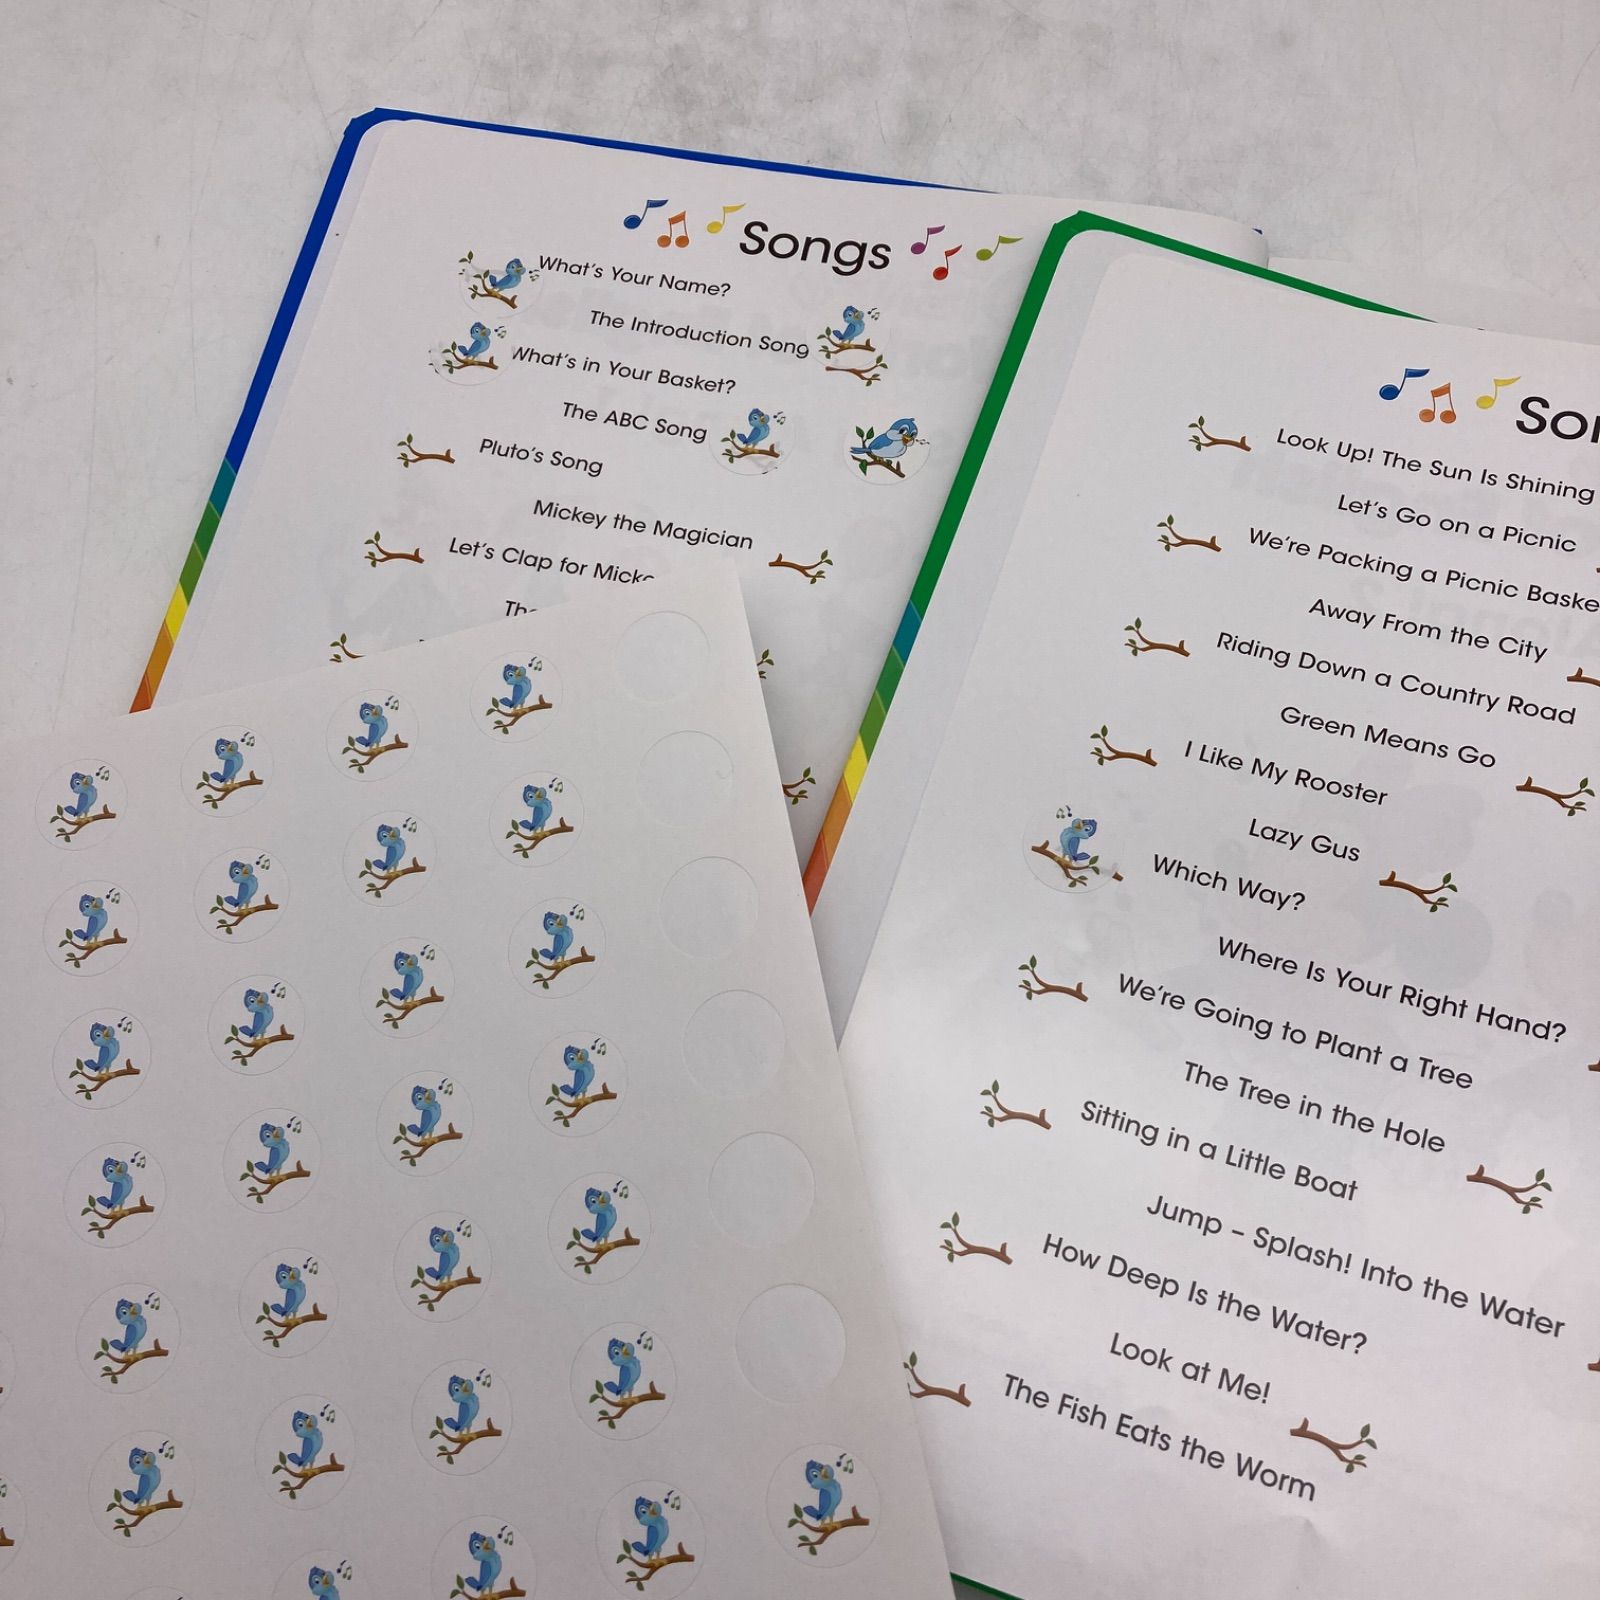 Songs
What's Your Name?
The Introduction Song
What's in Your Basket?
The ABC Song
Pluto's Song
Mickey the Magician
Let's Clap for
Look Up! The Sun Is Shining
Let's Go on a Picnic
We're Packing a Picnic
Away From the City
Riding Down a Country Road
Green Means Go
I Like My Rooster
Lazy Gus
Which Way?
Where Is Your Right Hand?
We're Going to Plant a Tree
The Tree in the Hole
Sitting in a Little Boat
Jump – Splash! Into the Water
How Deep Is the Water?
Look at Me!
The Fish Eats the Worm